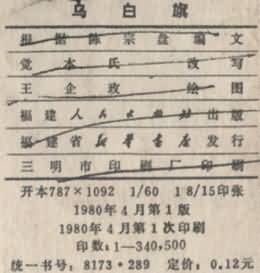 乌白旗
根据陈宗盘编文
党本氏改写
王企玫绘图
福建人民出版社出版
福建省新华书店发行
三明市印刷厂印刷
开本787×1092 1/60 1 8/15印张
1980年4月第1版
1980年4月第1次印刷
印数：1—340,500
统一书号：8173·289 定价：0.12元